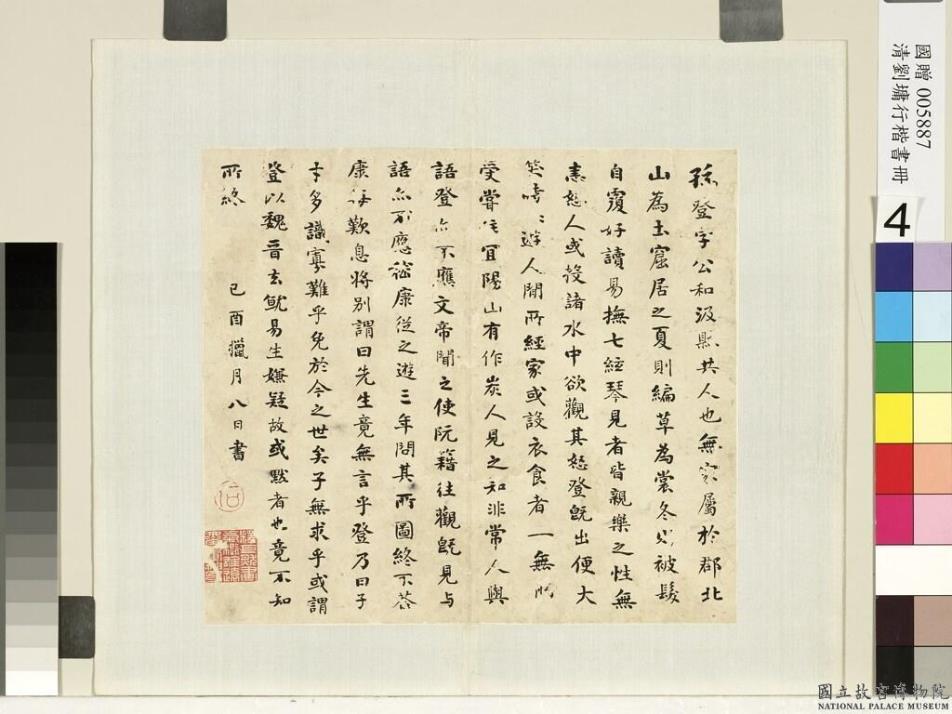 孫登字公和汲縣共人也無家屬於郡北
山為土窟居之夏則編草為裳冬則被髮
自覆好讀易撫七絃琴見者皆親樂之性無
恚怒人或投諸水中欲觀其怒登既出便大
笑時時遊人間所經家或設衣食者一無所
受嘗住宜陽山有作炭人見之知非常人與
語登亦不應文帝聞之使阮籍往觀既見與
語亦不應嵇康從之遊三年問其所圖終不答
康每歎息將別謂曰先生竟無言乎登乃曰子
才多識寡難乎免於今之世矣子無求乎或謂
登以魏晉去就易生嫌疑故或默者也竟不知
所終
己酉臘月八日書
國贈 005887
清劉墉行楷書冊
4
國立故宮博物院
NATIONAL PALACE MUSEUM